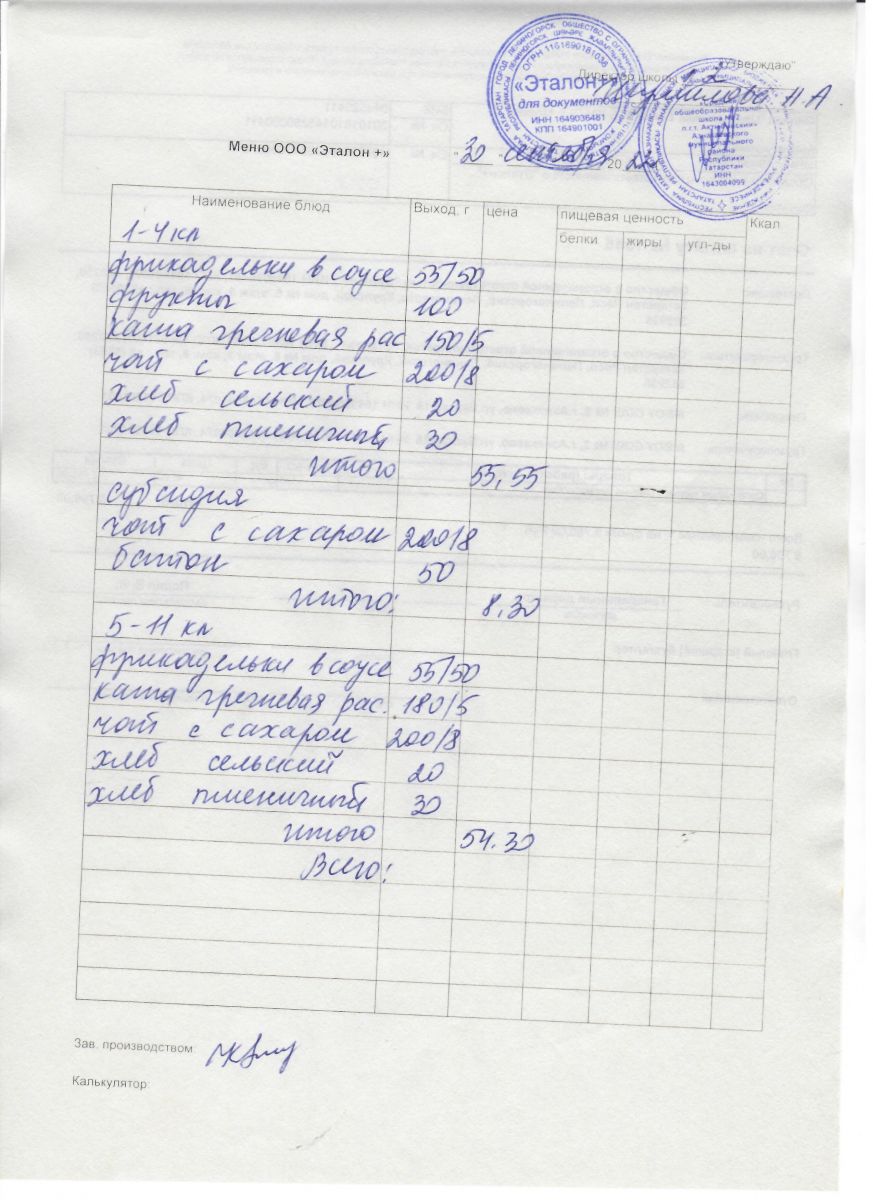 "Утверждаю"
Директор школы
Меню ООО «Эталон +» "30" сентября 20 22
«Эталон+»
для документов
ОГРН 1161690181036
ИНН 1649036481
КПП 164901001
общеобразовательная
школа №2
п.г.т. Актюбинский»
Азнакаевского
муниципального
района
Республики
Татарстан
ИНН
1643004099
Наименование блюд Выход. г цена пищевая ценность Ккал
белки жиры угл-ды
1-4 кл
фрикадельки в соусе 55/50
фрукты 100
каша гречневая рас 150/5
чай с сахаром 200/8
хлеб сельский 20
хлеб пшеничный 30
итого 55,55
субсидия
чай с сахаром 200/8
батон 50
итого: 8,30
5-11 кл
фрикадельки в соусе 55/50
каша гречневая рас. 180/5
чай с сахаром 200/8
хлеб сельский 20
хлеб пшеничный 30
итого 54.30
Всего:
Зав. производством:
Калькулятор: